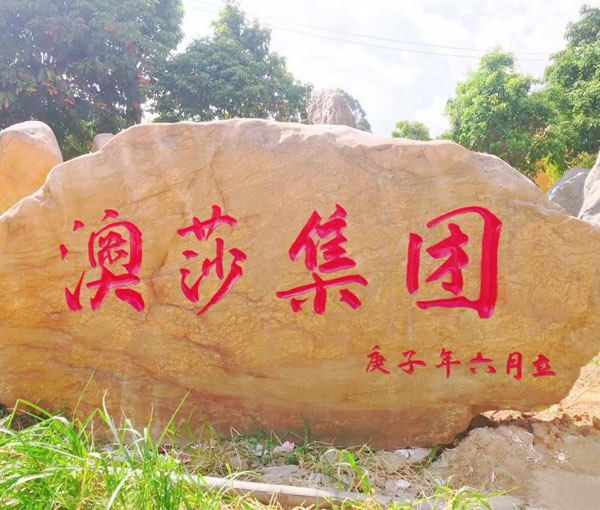 澳莎集团
庚子年六月立